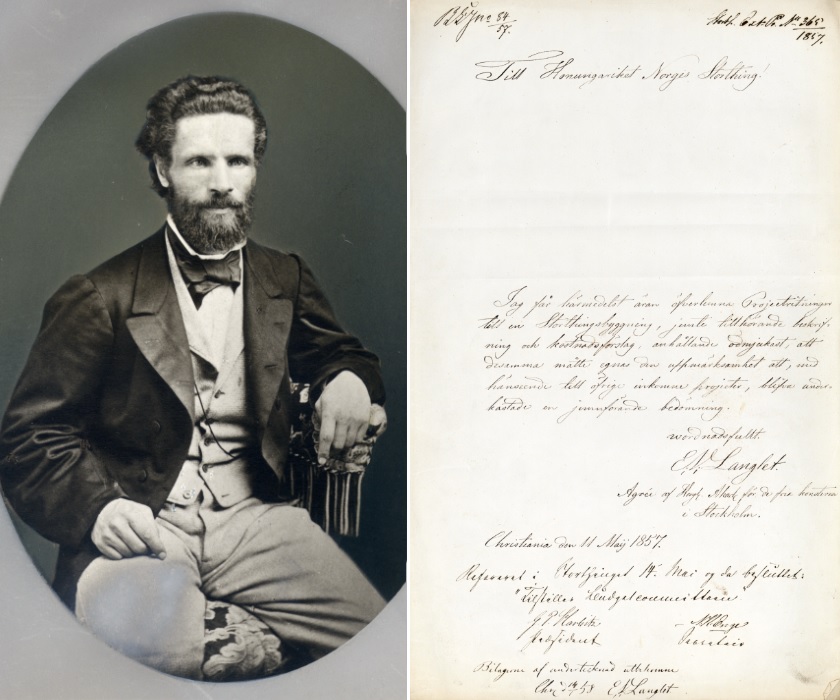 1857.
Till Konungariket Norges Storthing!
Jag får härmedelst äran öfverlemna Projectritningar
till en Storthingsbyggning, jemte tillhörande beskrif-
ning och kostnadsförslag, anhållande ödmjukast, att
desamma måtte egnas den uppmärksamhet att, med
hänseende till öfrige inkomne projecter, blifva under-
kastade en jemnförande bedömning.
wördnadsfullt
E. V. Langlet.
Agréé af Kongl. Akad. för de fria konsterna
i Stockholm.
Christiania den 11 Maij 1857.
Refereret i Storthinget 14 Mai og da besluttet:
Tilstilles Budgetcommitteen
Præsident
Bilagorne af undertecknad
E. V. Langlet